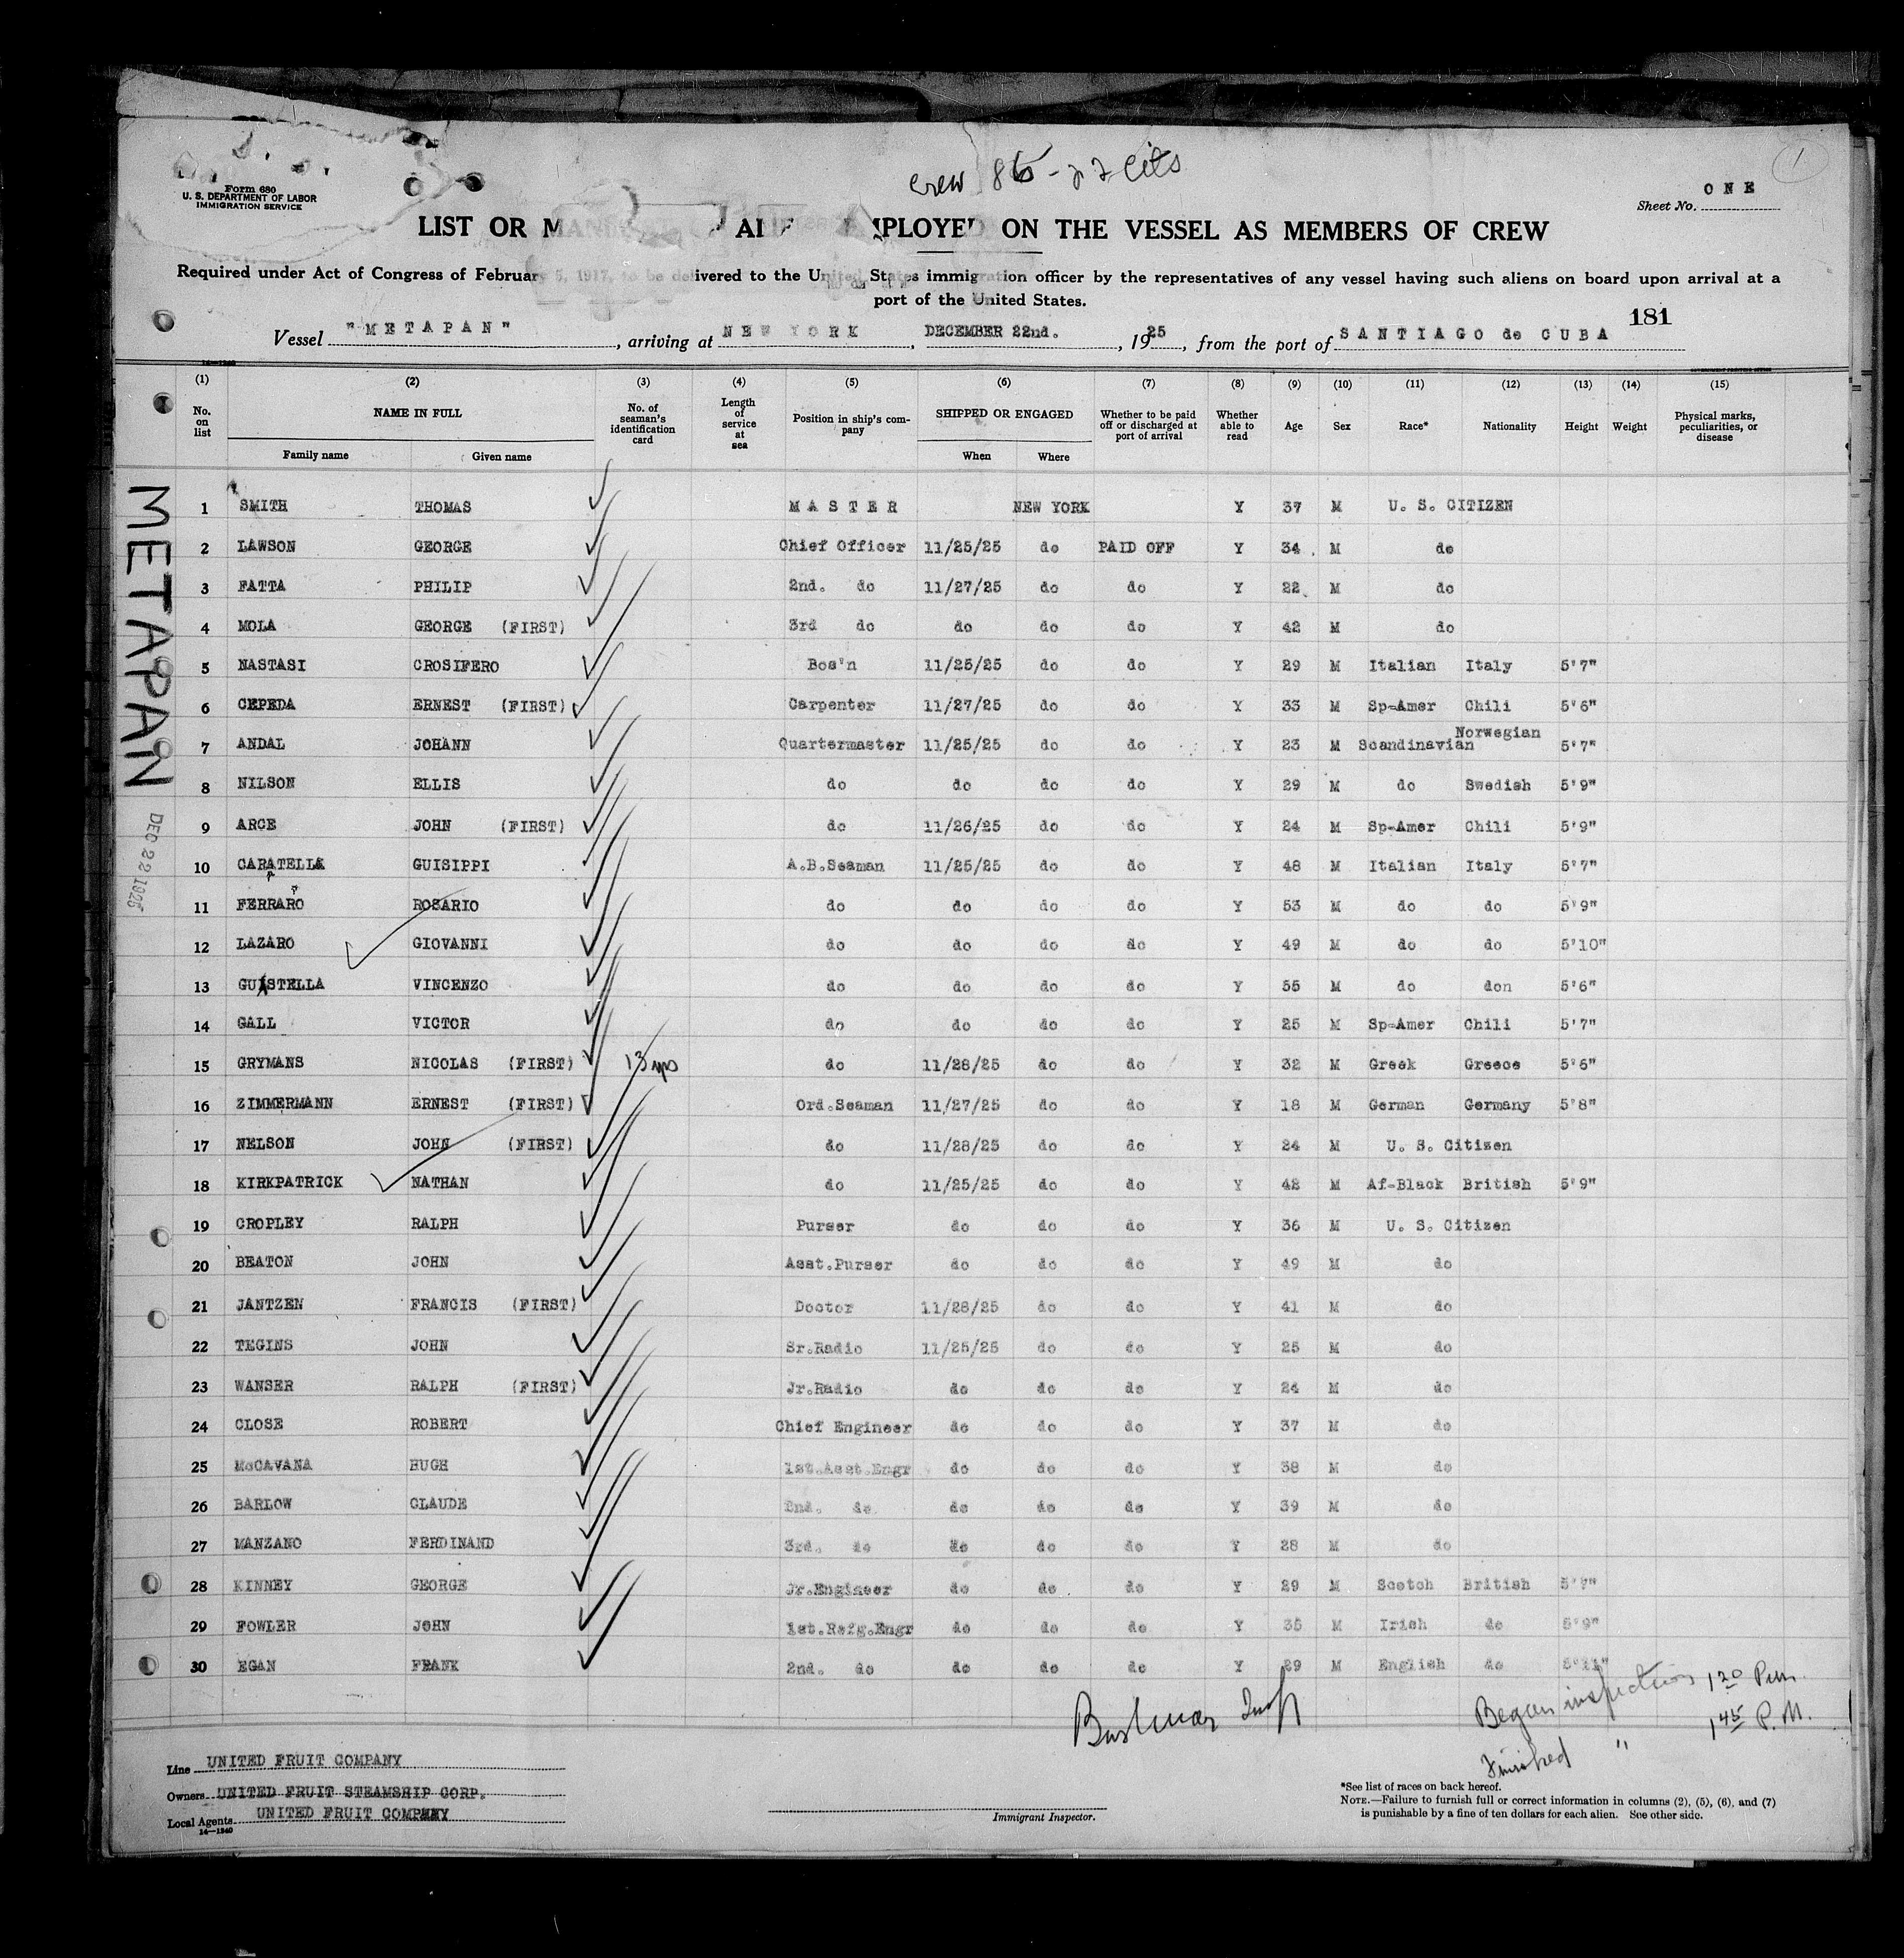 crew 85 - 22 Cits
1
Form 680
U. S. DEPARTMENT OF LABOR
IMMIGRATION SERVICE
ONE
Sheet No.
LIST OR MANIFEST ALIENS EMPLOYED ON THE VESSEL AS MEMBERS OF CREW
Required under Act of Congress of February 5, 1917, to be delivered to the United States immigration officer by the representatives of any vessel having such aliens on board upon arrival at a
port of the United States.
181
Vessel "METAPAN", arriving at NEW YORK, DECEMBER 22nd., 1925, from the port of SANTIAGO de CUBA
14-1240
(1) (2) (3) (4) (5) (6) (7) (8) (9) (10) (11) (12) (13) (14) (15)
No. on list NAME IN FULL No. of seaman's identification card Length of service at sea Position in ship's company SHIPPED OR ENGAGED Whether to be paid off or discharged at port of arrival Whether able to read Age Sex Race* Nationality Height Weight Physical marks, peculiarities, or disease
Family name Given name When Where
METAPAN
DEC 22 1925
1 SMITH THOMAS MASTER NEW YORK Y 37 M U. S. CITIZEN
2 LAWSON GEORGE Chief Officer 11/25/25 do PAID OFF Y 34 M do
3 FATTA PHILIP 2nd. do 11/27/25 do do Y 22 M do
4 MOLA GEORGE (FIRST) 3rd do do do do Y 42 M do
5 NASTASI CROSIFERO Bos'n 11/25/25 do do Y 29 M Italian Italy 5'7"
6 CEPEDA ERNEST (FIRST) Carpenter 11/27/25 do do Y 33 M Sp-Amer Chili 5'6"
7 ANDAL JOHANN Quartermaster 11/25/25 do do Y 23 M Scandinavian Norwegian 5'7"
8 NILSON ELLIS do do do do Y 29 M do Swedish 5'9"
9 ARCE JOHN (FIRST) do 11/26/25 do do Y 24 M Sp-Amer Chili 5'9"
10 CARATELLA GUISIPPI A.B.Seaman 11/25/25 do do Y 48 M Italian Italy 5'7"
11 FERRARO ROSARIO do do do do Y 53 M do do 5'9"
12 LAZARO GIOVANNI do do do do Y 49 M do do 5'10"
13 GUASTELLA VINCENZO do do do do Y 55 M do don 5'6"
14 GALL VICTOR do do do do Y 25 M Sp-Amer Chili 5'7"
15 GRYMANS NICOLAS (FIRST) 13 yrs do 11/28/25 do do Y 32 M Greek Greece 5'6"
16 ZIMMERMANN ERNEST (FIRST) Ord.Seaman 11/27/25 do do Y 18 M German Germany 5'8"
17 NELSON JOHN (FIRST) do 11/28/25 do do Y 24 M U. S. Citizen
18 KIRKPATRICK NATHAN do 11/25/25 do do Y 42 M Af-Black British 5'9"
19 CROPLEY RALPH Purser do do do Y 36 M U. S. Citizen
20 BEATON JOHN Asst.Purser do do do Y 49 M do
21 JANTZEN FRANCIS (FIRST) Doctor 11/28/25 do do Y 41 M do
22 TEGINS JOHN Sr.Radio 11/25/25 do do Y 25 M do
23 WANSER RALPH (FIRST) Jr.Radio do do do Y 24 M do
24 CLOSE ROBERT Chief Engineer do do do Y 37 M do
25 McCAVANA HUGH 1st.Asst.Engr do do do Y 38 M do
26 BARLOW CLAUDE 2nd. do do do do Y 39 M do
27 MANZANO FERDINAND 3rd. do do do do Y 28 M do
28 KINNEY GEORGE Jr.Engineer do do do Y 29 M Scotch British 5'9"
29 FOWLER JOHN 1st.Refg.Engr do do do Y 35 M Irish do 5'9"
30 EGAN FRANK 2nd. do do do do Y 29 M English do 5'11"
Began inspection 1 20 P.M.
Finished " 1 45 P. M.
Line UNITED FRUIT COMPANY
Owners UNITED FRUIT STEAMSHIP CORP.
Local Agents UNITED FRUIT COMPANY
14-1240
Immigrant Inspector.
*See list of races on back hereof.
NOTE.—Failure to furnish full or correct information in columns (2), (5), (6), and (7)
is punishable by a fine of ten dollars for each alien. See other side.